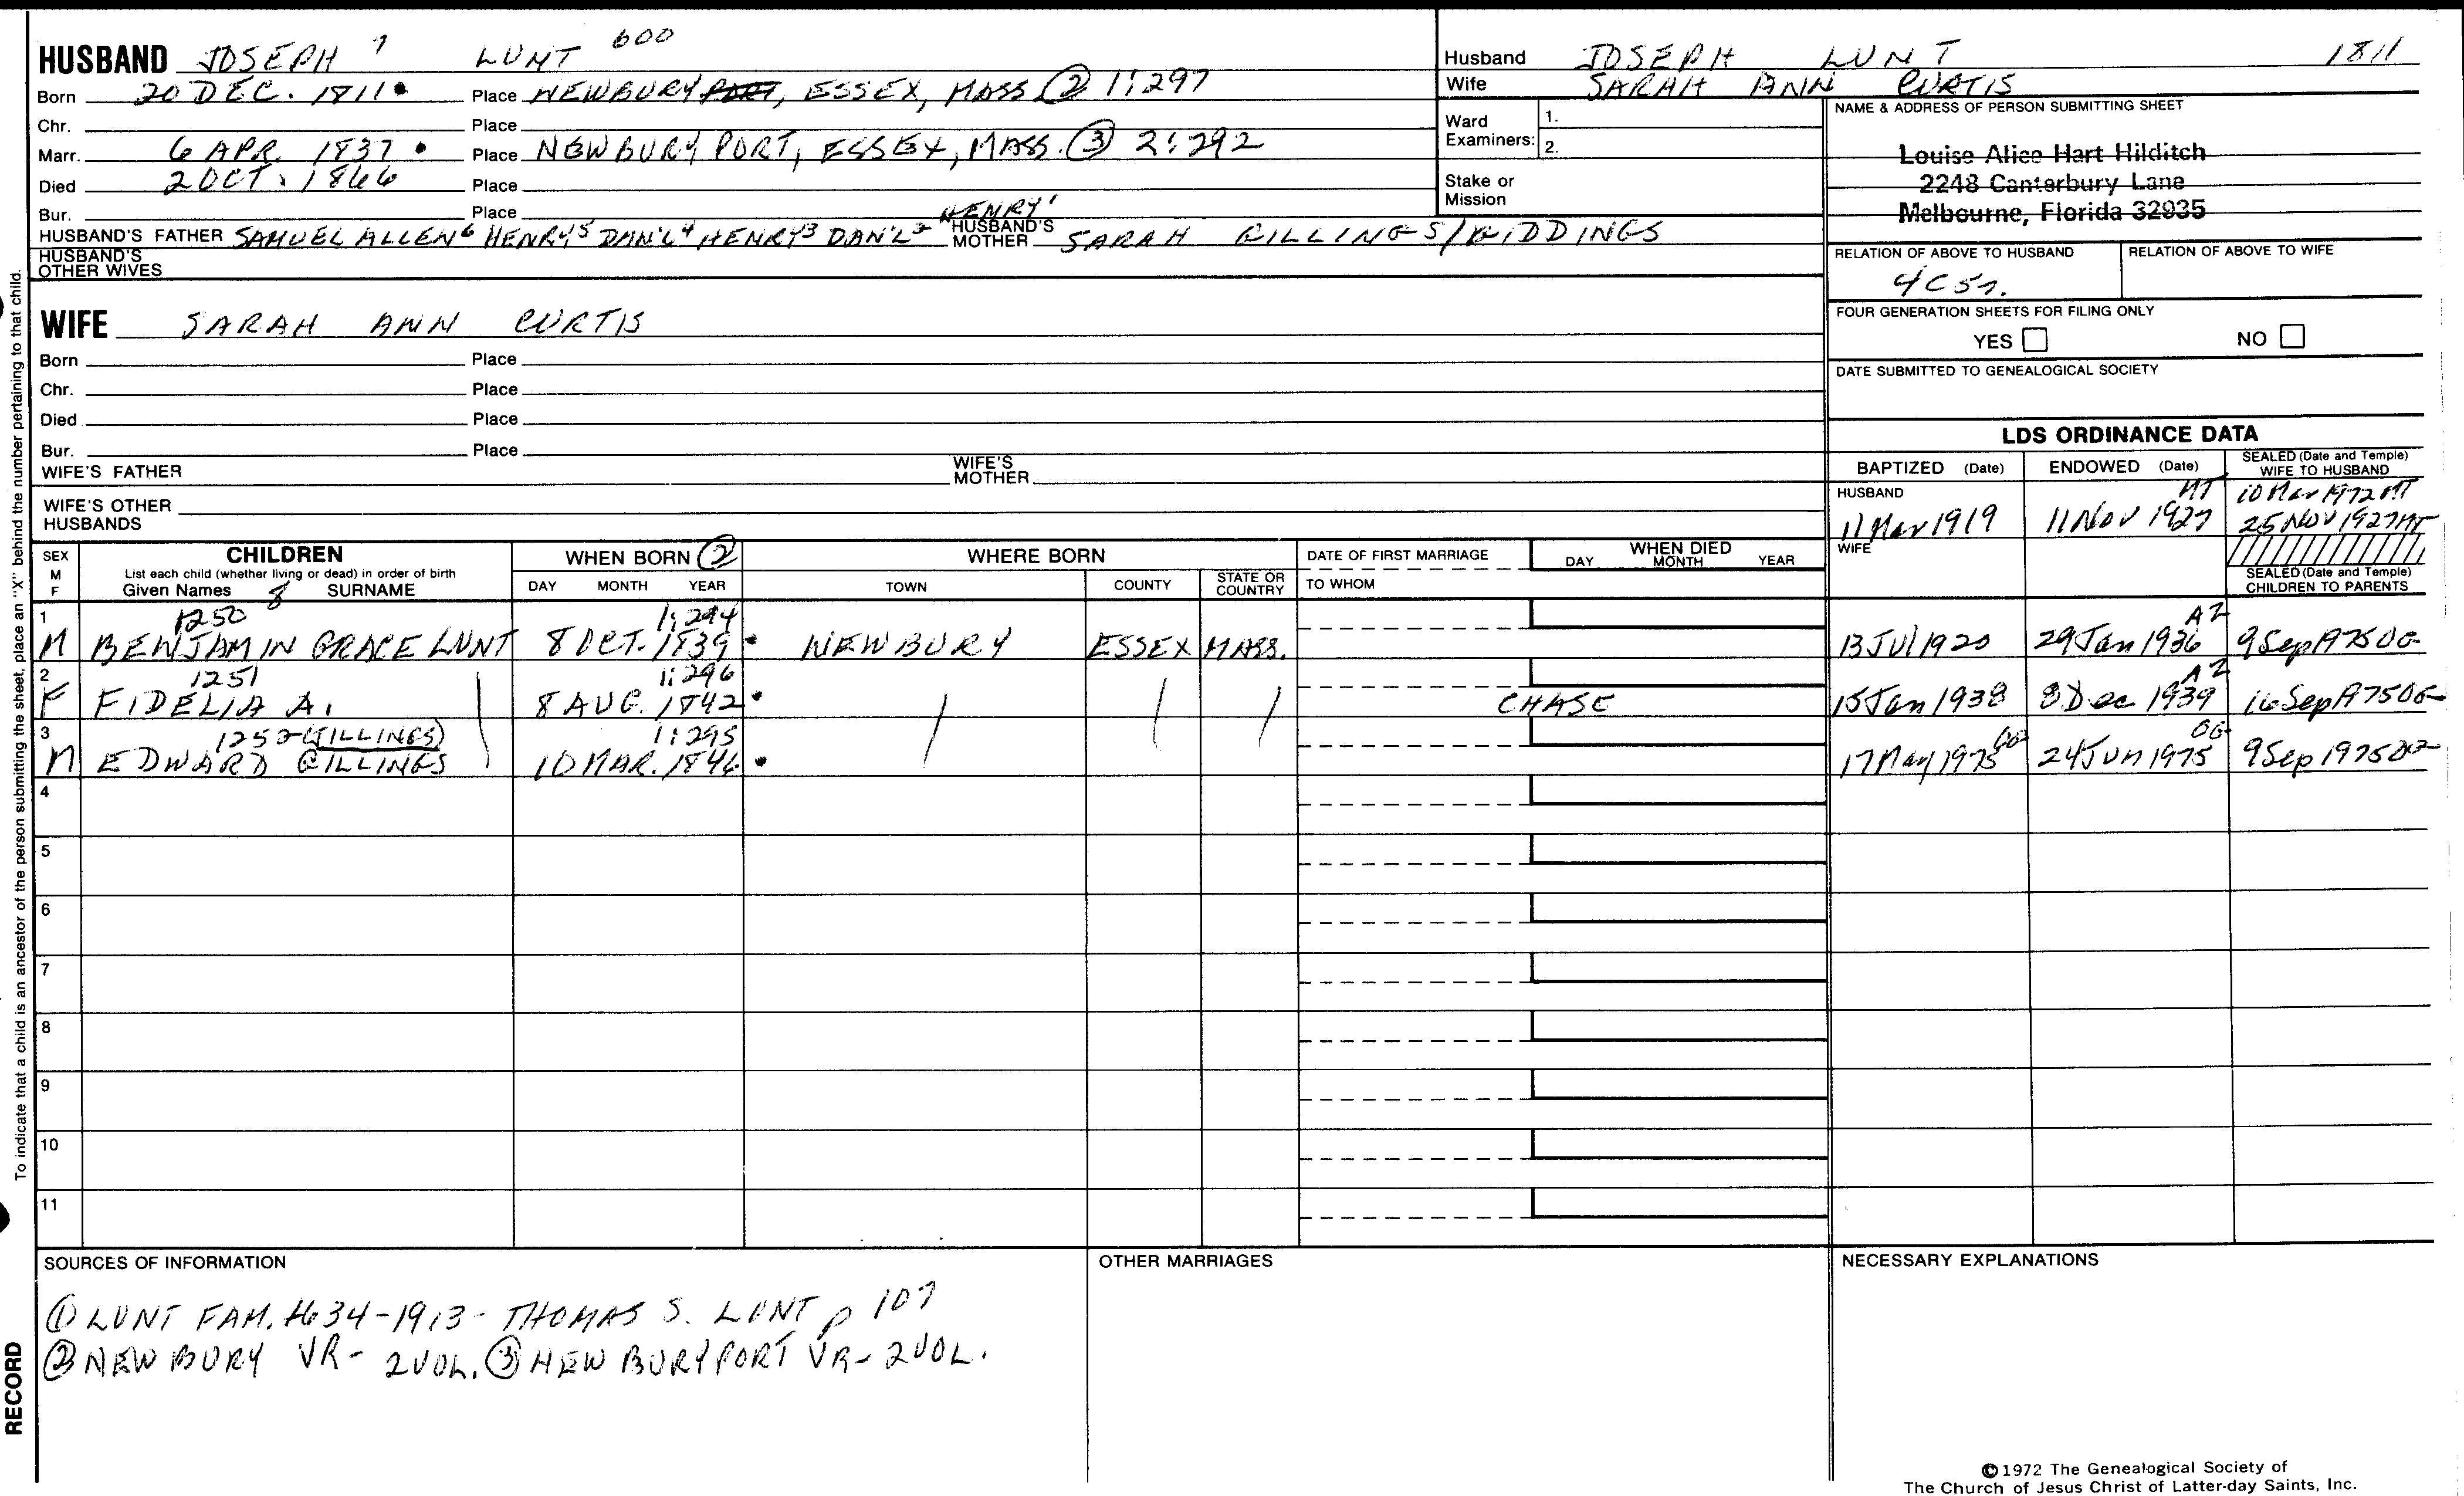 HUSBAND JOSEPH 7 LUNT 600
Born 20 DEC. 1811 Place NEWBURYPORT, ESSEX, MASS ② 1:297
Chr. Place
Marr. 6 APR. 1837 Place NEWBURYPORT, ESSEX, MASS. ③ 2:292
Died 2 OCT. 1866 Place
Bur. Place
HENRY1
HUSBAND'S FATHER SAMUEL ALLEN6 HENRY5 DAN'L4 HENRY3 DAN'L2 HUSBAND'S MOTHER SARAH GILLINGS/GIDDINGS
HUSBAND'S OTHER WIVES
Husband JOSEPH LUNT 1811
Wife SARAH ANN CURTIS
Ward Examiners: 1.
2.
Stake or Mission
NAME & ADDRESS OF PERSON SUBMITTING SHEET
Louise Alice Hart Hilditch
2248 Canterbury Lane
Melbourne, Florida 32935
RELATION OF ABOVE TO HUSBAND RELATION OF ABOVE TO WIFE
4C5r.
FOUR GENERATION SHEETS FOR FILING ONLY
YES NO
DATE SUBMITTED TO GENEALOGICAL SOCIETY
WIFE SARAH ANN CURTIS
Born Place
Chr. Place
Died Place
Bur. Place
WIFE'S FATHER WIFE'S MOTHER
WIFE'S OTHER HUSBANDS
LDS ORDINANCE DATA
BAPTIZED (Date) ENDOWED (Date) SEALED (Date and Temple) WIFE TO HUSBAND
HUSBAND MT 10 Mar 1972 MT
11 Mar 1919 11 Nov 1927 25 Nov 1927 MT
WIFE
SEALED (Date and Temple) CHILDREN TO PARENTS
SEX M F CHILDREN WHEN BORN ② WHERE BORN DATE OF FIRST MARRIAGE WHEN DIED
List each child (whether living or dead) in order of birth DAY MONTH YEAR TOWN COUNTY STATE OR COUNTRY TO WHOM DAY MONTH YEAR
Given Names 8 SURNAME
1 1250 1:294 AZ
M BENJAMIN GRACE LUNT 8 OCT. 1839 NEWBURY ESSEX MASS. 13 Jul 1920 29 Jan 1936 9 Sep 1975 OG
2 1251 1:296 AZ
F FIDELIA A. 8 AUG. 1842 CHASE 15 Jan 1938 8 Dec 1939 16 Sep 1975 OG
3 1252 (JILLINGS) 1:295 OG OG
M EDWARD GILLINGS 10 MAR. 1846 17 May 1975 24 Jun 1975 9 Sep 1975 OG
4
5
6
7
8
9
10
11
SOURCES OF INFORMATION
① LUNT FAM. 1634-1913- THOMAS S. LUNT p 107
② NEWBURY VR- 2 VOL. ③ NEWBURYPORT VR- 2 VOL.
OTHER MARRIAGES
NECESSARY EXPLANATIONS
©1972 The Genealogical Society of
The Church of Jesus Christ of Latter-day Saints, Inc.
To indicate that a child is an ancestor of the person submitting the sheet, place an "X" behind the number pertaining to that child.
RECORD